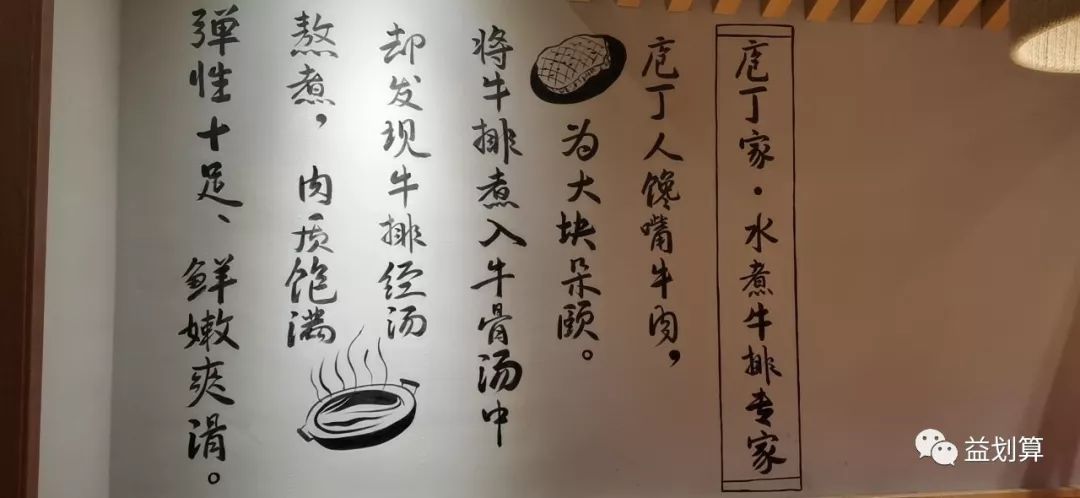 庖丁家·水煮牛排专家
庖丁人馋嘴牛肉，
为大块朵颐。
将牛排煮入牛骨汤中
却发现牛排经汤
熬煮，肉质饱满
弹性十足、鲜嫩爽滑。
益划算